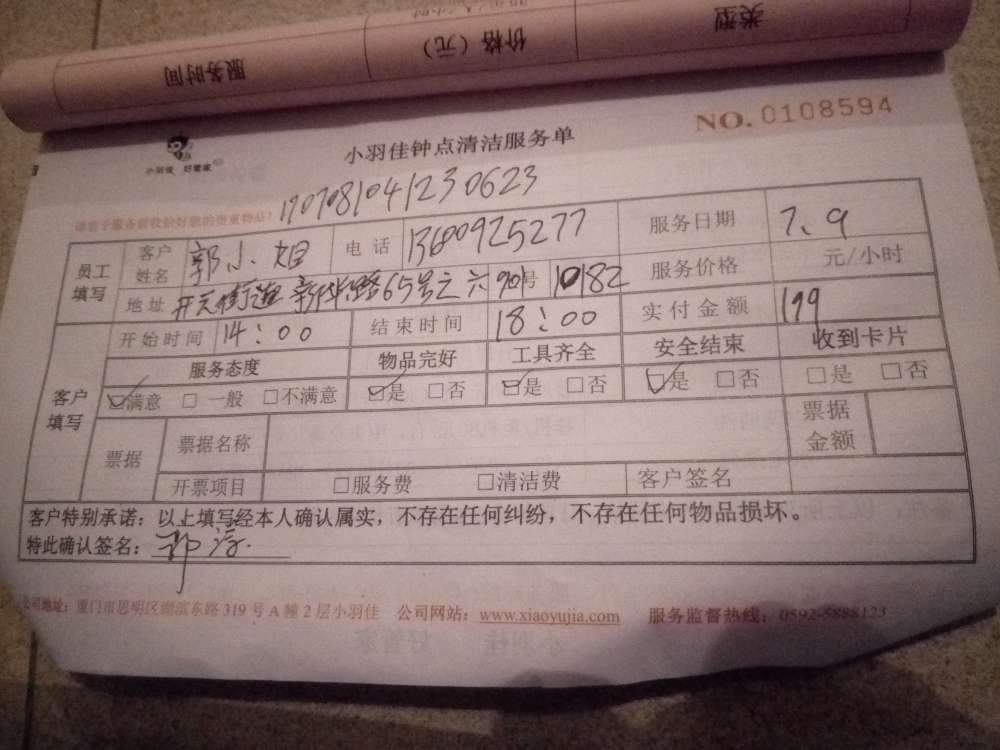 类型
价格（元）
服务时间
小羽佳 好管家
小羽佳钟点清洁服务单
NO. 0108594
1707081041230623
员工填写
客户姓名 郭小姐 电话 13609725277 服务日期 7.9
地址 开元街道 新华路65号之六 901号 10182 服务价格 元/小时
客户填写
开始时间 14:00 结束时间 18:00 实付金额 199
服务态度 物品完好 工具齐全 安全结束 收到卡片
☑满意 □ 一般 □不满意 ☑是 □否 ☑是 □否 ☑是 □否 □是 □否
票据 票据名称 票据金额
开票项目 □服务费 □清洁费 客户签名
客户特别承诺：以上填写经本人确认属实，不存在任何纠纷，不存在任何物品损坏。
特此确认签名：
公司地址：厦门市思明区湖滨东路 319 号 A 幢 2 层小羽佳 公司网站：www.xiaoyujia.com 服务监督热线：0592-5888123